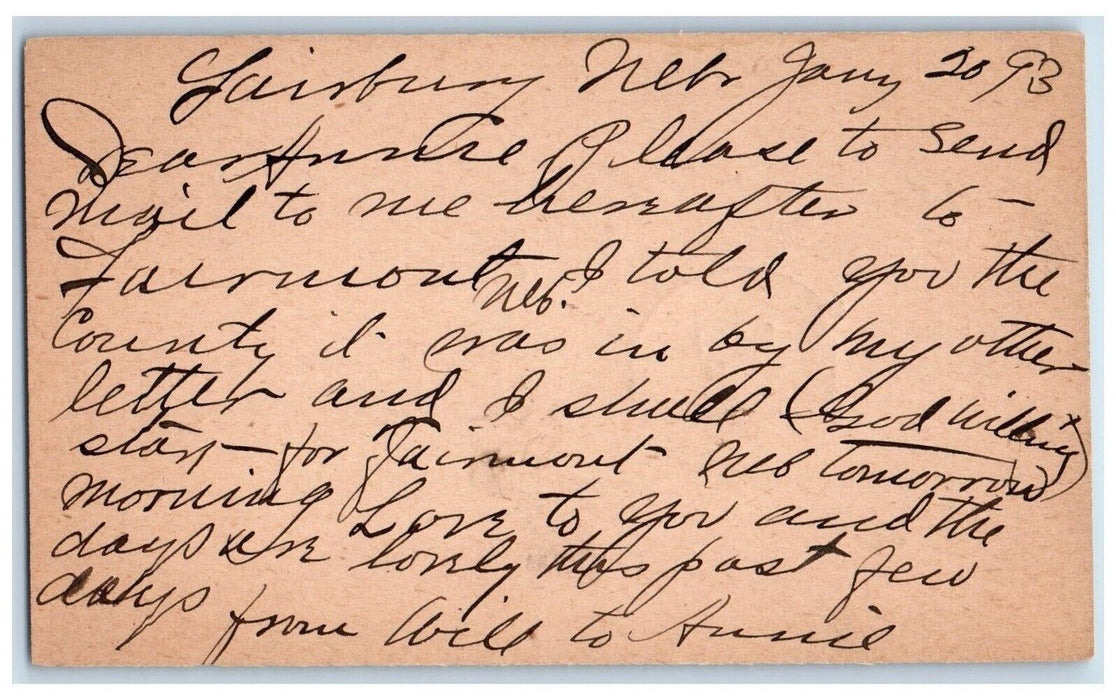 Fairbury Nebr Jany 20 93
Dear Annie Please to send
mail to me hereafter to
Fairmont Neb. I told you the
County I was in by my other
letter and I shall (God willing)
start for Fairmont Neb tomorrow
morning Love to you and the
days are lovely this past few
days
from Will to Annie